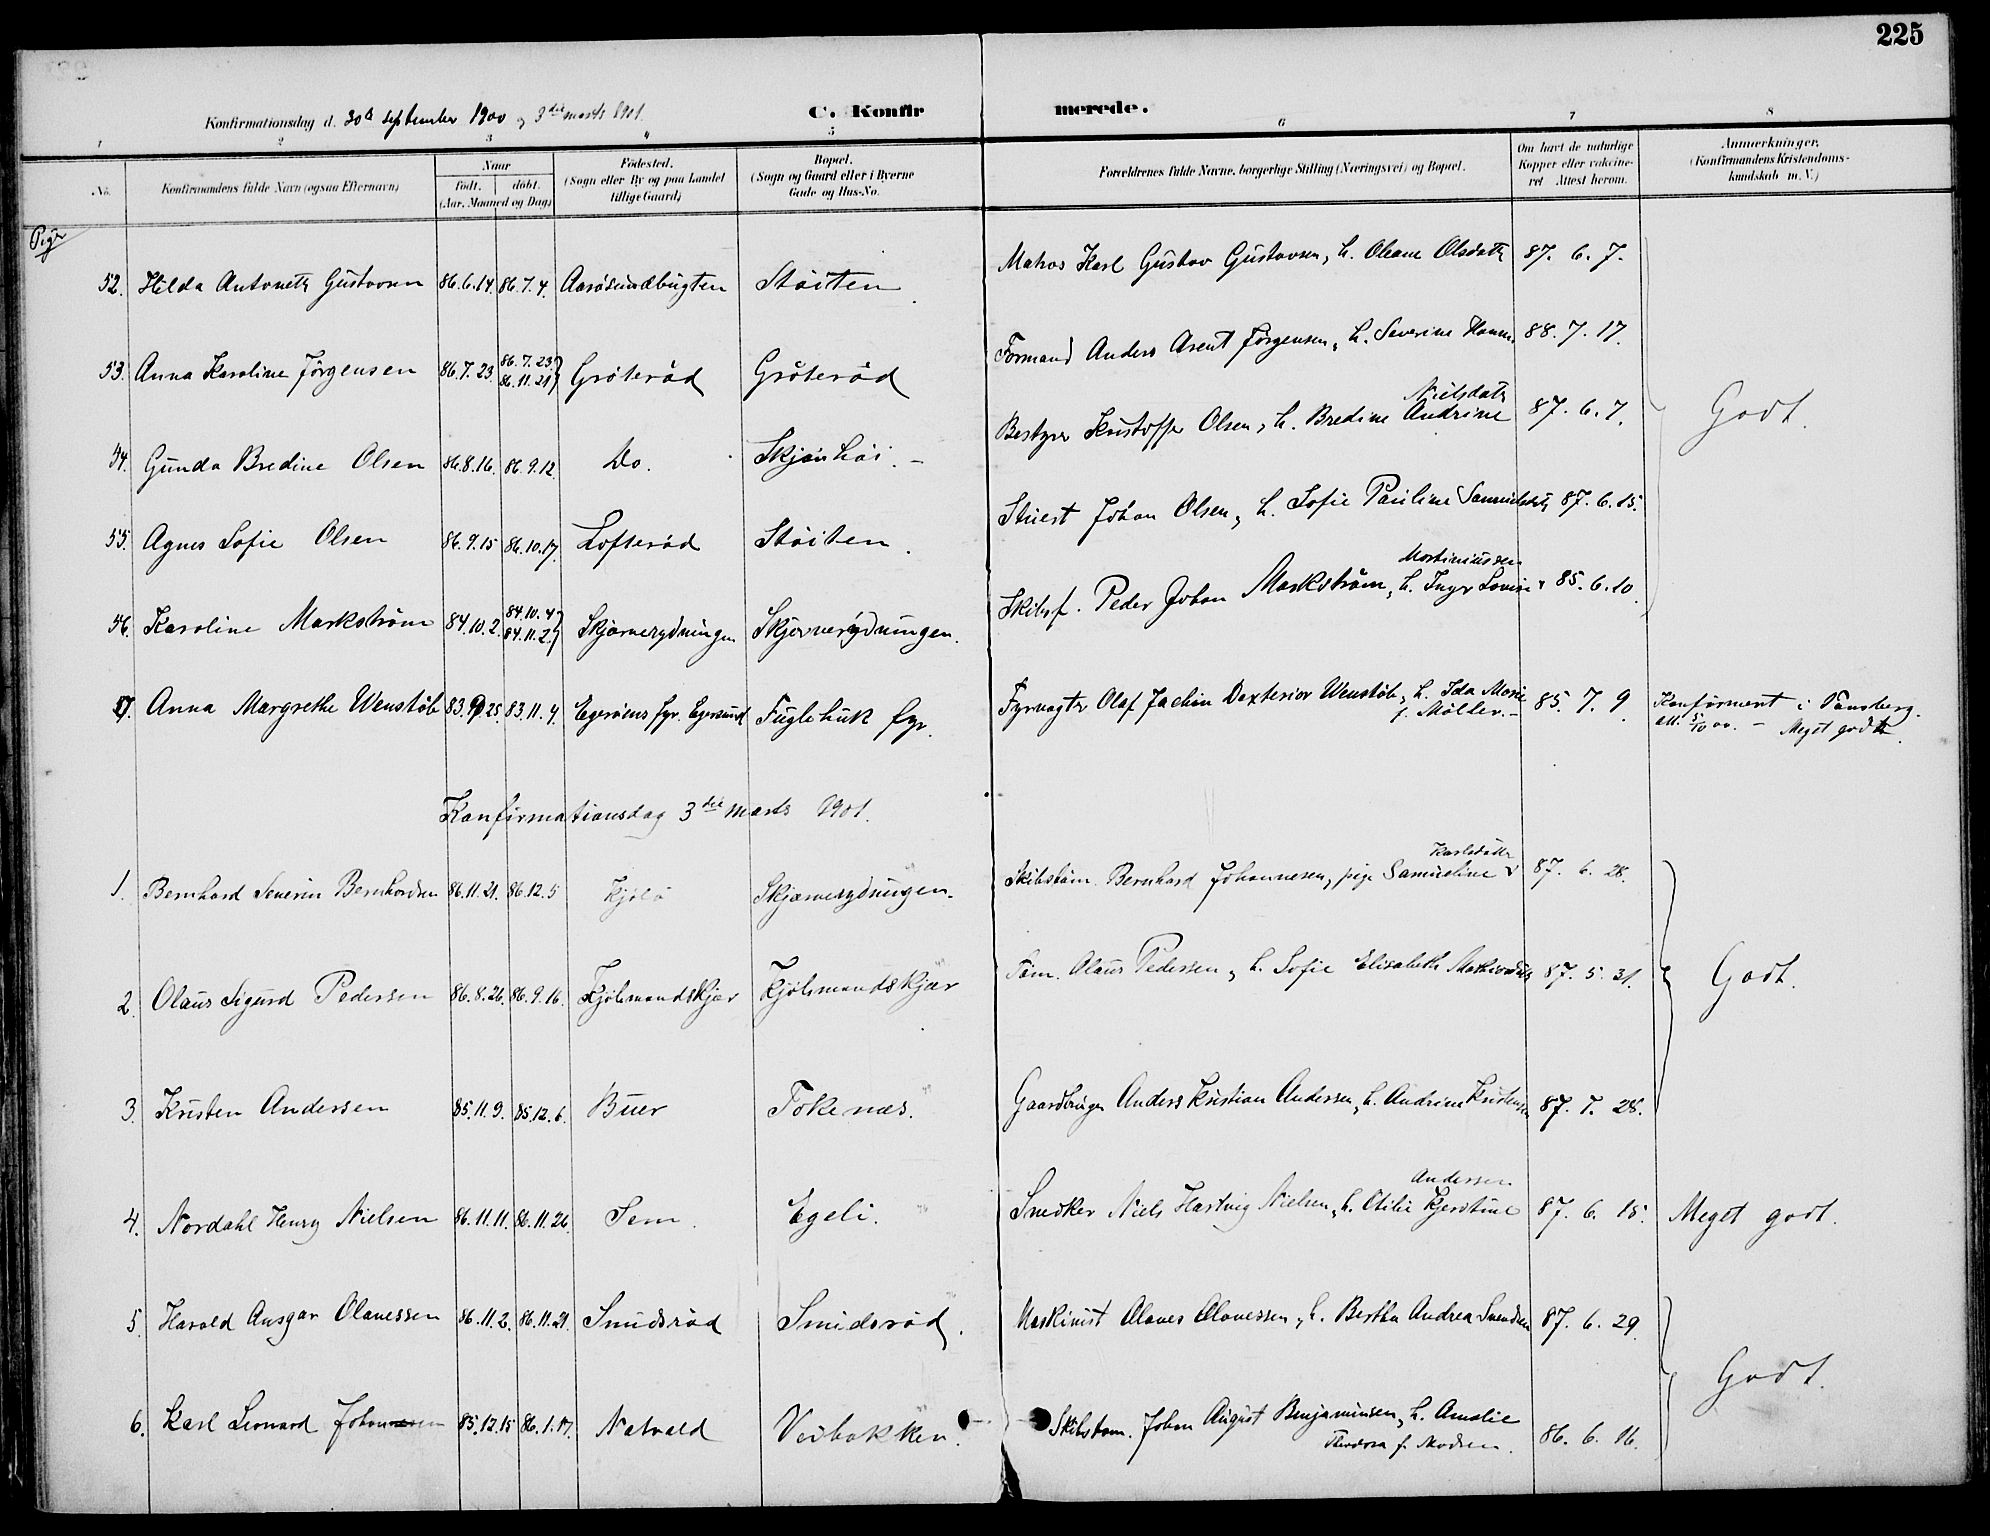 225
Konfirmationsdag d. 30te september 1900 og 3die marts 1901.
C. Konfirmerede.
1 2 3 4 5 6 7 8
No. Konfirmandens fulde Navn (ogsaa Efternavn)
Naar født. døbt. (Aar, Maaned og Dag)
Fødested. (Sogn eller By og paa Landet tillige Gaard)
Bopæl. (Sogn og Gaard eller i Byerne Gade og Hus-No.
Forældrenes fulde Navne, borgerlige Stilling (Næringsvei) og Bopæl.
Om havt de naturlige Kopper eller vaccineret. Attest herom.
Anmerkninger. (Konfirmandens Kristendomskundskab m. V.)
Piger
52. Hilda Antonette Gustavsen 86.6.14. 86.7.4. Aarøsundbugten Støiten Matros Karl Gustav Gustavsen, h. Oleane Olsdatr 87. 6. 7.
53. Anna Karoline Jörgensen 86.7.23. 86.7.23. 86.11.21 Gröteröd Gröteröd Formand Anders Arent Jörgensen, h. Severine Hanna Nielsdatr 88. 7. 17.
54. Gunda Bredine Olsen 86.8.16. 86.9.12. Do. Skjönhöi. Bestyrer Kristoffer Olsen, h. Bredine Andrine 87. 6. 7. Godt.
55. Agnes Sofie Olsen 86.9.15 86.10.17. Lofteröd Støiten. Stuert Johan Olsen, h. Sofie Pauline Samuelsdatr 87. 6. 15.
56. Karoline Markström 84.10.2. 84.10.4 84.11.2. Skjærverydningen Skjerverydningen. Skibsf. Peder Johan Markström, h. Inger Lovise Martiniussen 85. 6. 10.
57. Anna Margrethe Wenstöb 83.9.25. 83.11.4. Egerøens fyr. Egersund Fuglehuk fyr. Fyrvogter Olaf Jachin Dexterior Wenstöb, h. Ida Marie f. Möller. 85. 7. 9. Konfirmert i Tønsberg. att. 5/10 00. - Meget godt.
Konfirmationsdag 3die marts 1901.
1. Bernhard Severin Bernhardsen 86.11.21. 86.12.5 Kjölö Skjærverydningen. Skibstöm. Bernhard Johannesen, pige Samueline Karlsdatr 87. 6. 28.
2. Olaus Sigurd Pedersen 86.8.26. 86.9.16. Kjölmandskjær Kjölmandskjær Töm. Olaus Pedersen, h. Sofie Elisabeth Mathisdatr 87. 5. 31. Godt.
3. Kristen Andersen 85.11.9. 85.12.6. Buer Tokenæs. Gaardbruger Anders Kristian Andersen, h. Andrine Kristensen 87. 7. 28.
4. Nordahl Henry Nielsen 86.11.11. 86.11.26. Sem. Egeli. Snedker Niels Hartvig Nielsen, h. Otilie Kjerstine Andersen 87. 6. 15. Meget godt.
5. Harald Ansgar Olavessen 86.11.2. 86.11.21. Smidsröd Smidsröd. Maskinist Olaves Olavessen, h. Bertha Andrea Svendsen 87. 6. 29.
6. Karl Leonard Johannesen 85.12.15 86.1.17. Natvald Veibakken. Skibstøm. Johan August Benjaminsen, h. Amalie Theodora f. Madsen. 86. 6. 16. Godt.